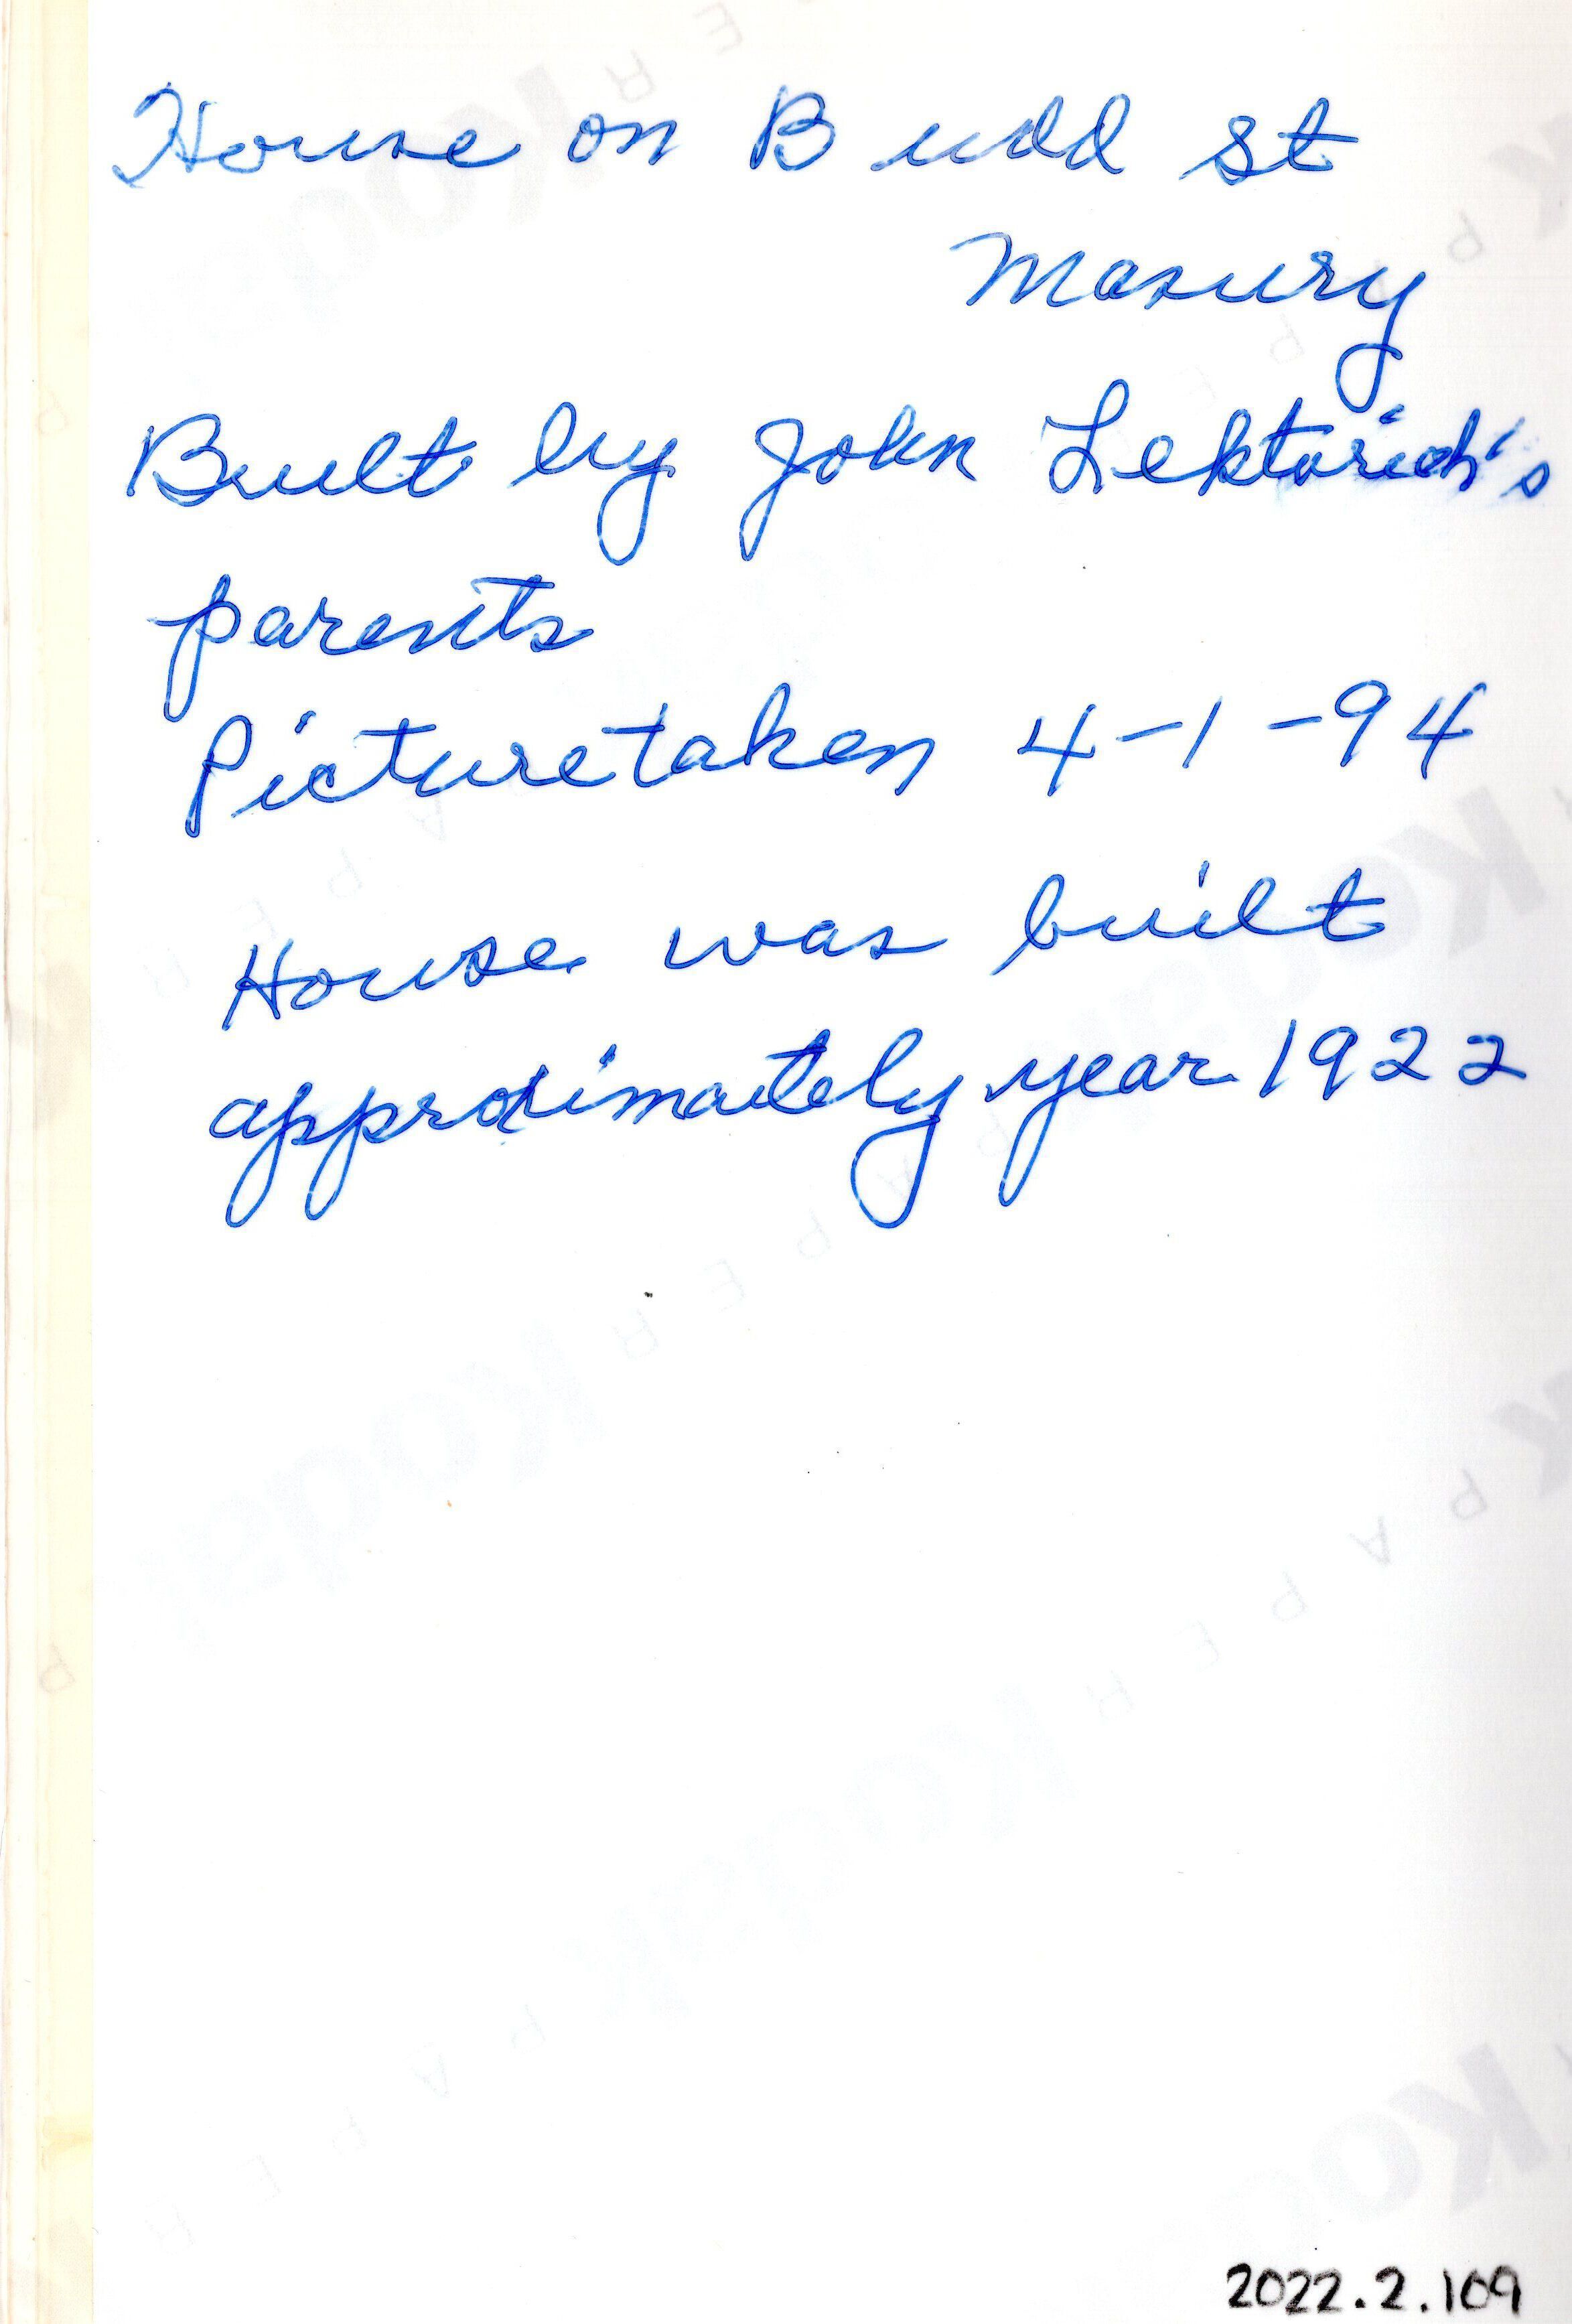 House on Budd St
Masury
Built by John Lektorich's
parents
Picture taken 4-1-94
House was built
approximately year 1922
2022.2.109